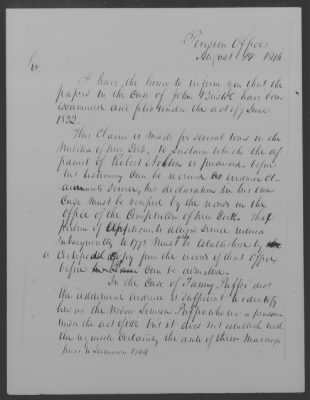 Pension Office
August 1846
Sir
I have the honor to inform you that the
papers in the Case of John have been
examined and filed under the act of 7 June
1832.
This Claim is made for several tours in the
Militia of New York, to sustain which the af
fidavit of Robert is produced. before
his testimony can be received as evidence of
service, his declaration in his own
Case must be verified by the records in the
office of the Comptroller of New York. That
portion of Applicants alleged service rendered
subsequently to 1778 must be established by
a Certified Copy from the records of that Office
before Can be admitted.
In the Case of Fanny Puffer dec
the additional evidence is sufficient to identify
her as the Widow Puffer who was a pensioner
under the act of but it does not establish with
the requisite Certainty the date of their Marriage
prior to January